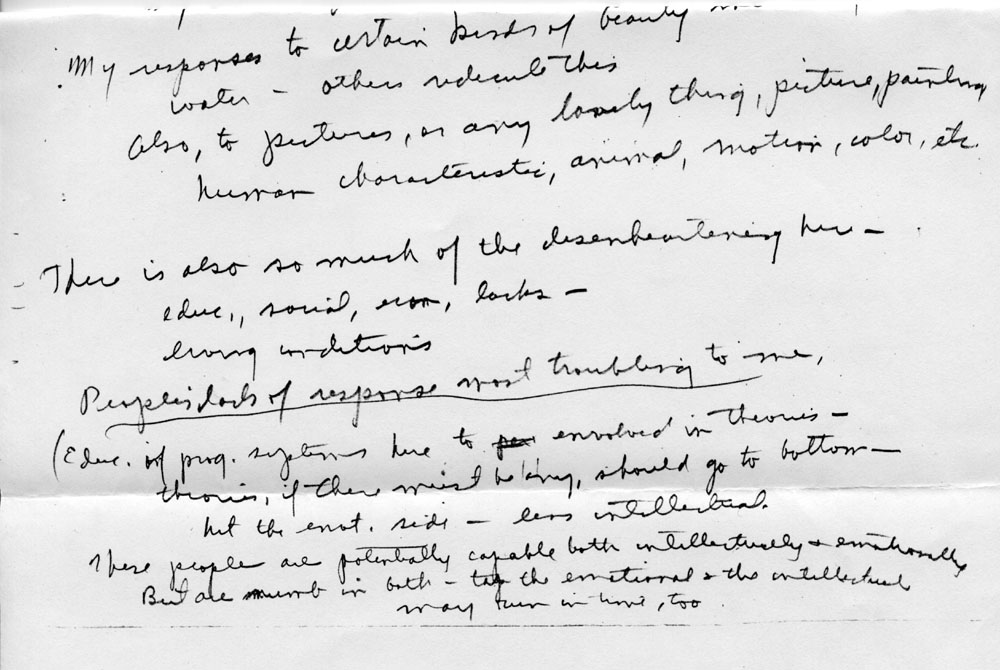 My responses to certain kinds of beauty
water - others ridicule this
Also, to pictures, or any lovely thing, picture, painting
human characteristic, animal, motion, color, etc.
There is also so much of the disenheartening here -
educ., social, econ, lacks -
living conditions
People's lack of response most troubling to me,
(Educ. of prog. systems here to envolved in theories -
theories, if there must be any, should go to bottom -
hit the emot. side - less intellectual.
These people are potentially capable both intellectually & emotionally
But are numb in both - tap the emotional & the intellectual
may turn in time, too.